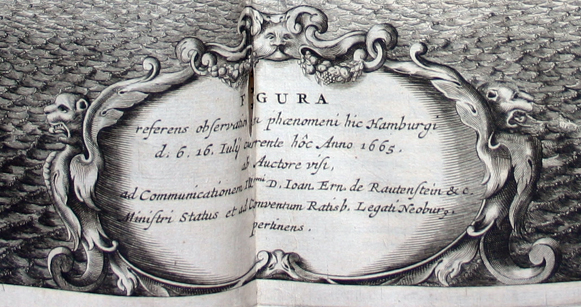 FIGURA
referens observationem phænomeni hîc Hamburgi
d. 6. 16. Iulij currente hôc Anno 1665.
ab Auctore visi,
ad Communicationem Ill:mi D. Ioan. Ern. de Rautenstein & c.
Ministri Status et ad Conventum Ratisb. Legati Neoburg.
pertinens.